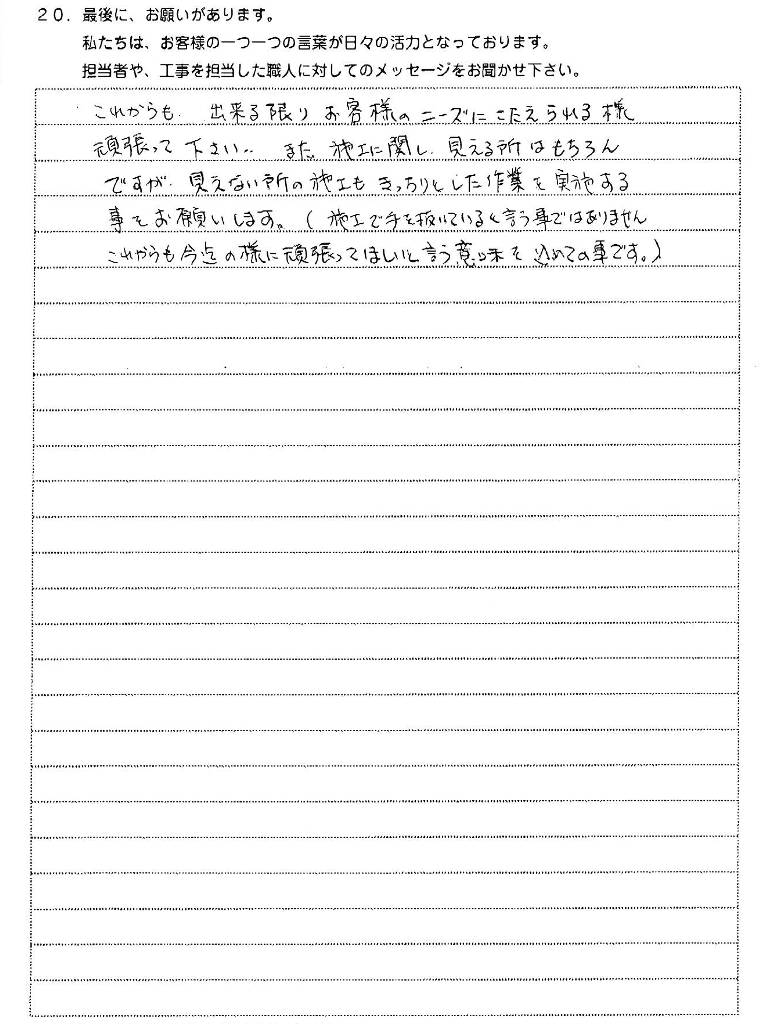 20．最後に、お願いがあります。
私たちは、お客様の一つ一つの言葉が日々の活力となっております。
担当者や、工事を担当した職人に対してのメッセージをお聞かせ下さい。
これからも、出来る限りお客様のニーズにこたえられる様
頑張って下さい。また、施工に関し、見える所はもちろん
ですが、見えない所の施工もきっちりとした作業を実施する
事をお願いします。(施工で手を抜いていると言う事ではありません
これからも今迄の様に頑張ってほしいと言う意味を込めての事です。)